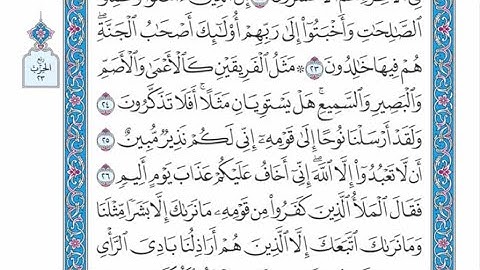 ٱلصَّٰلِحَٰتِ وَأَخْبَتُوٓا۟ إِلَىٰ رَبِّهِمْ أُو۟لَٰٓئِكَ أَصْحَٰبُ ٱلْجَنَّةِ ۖ
هُمْ فِيهَا خَٰلِدُونَ ٢٣ ۞ مَثَلُ ٱلْفَرِيقَيْنِ كَٱلْأَعْمَىٰ وَٱلْأَصَمِّ
وَٱلْبَصِيرِ وَٱلسَّمِيعِ ۚ هَلْ يَسْتَوِيَانِ مَثَلًا ۚ أَفَلَا تَذَكَّرُونَ ٢٤
وَلَقَدْ أَرْسَلْنَا نُوحًا إِلَىٰ قَوْمِهِۦٓ إِنِّى لَكُمْ نَذِيرٌ مُّبِينٌ ٢٥
أَن لَّا تَعْبُدُوٓا۟ إِلَّا ٱللَّهَ ۖ إِنِّىٓ أَخَافُ عَلَيْكُمْ عَذَابَ يَوْمٍ أَلِيمٍ ٢٦
فَقَالَ ٱلْمَلَأُ ٱلَّذِينَ كَفَرُوا۟ مِن قَوْمِهِۦ مَا نَرَىٰكَ إِلَّا بَشَرًا مِّثْلَنَا
وَمَا نَرَىٰكَ ٱتَّبَعَكَ إِلَّا ٱلَّذِينَ هُمْ أَرَاذِلُنَا بَادِىَ ٱلرَّأْىِ
ربع
الحزب
٢٣